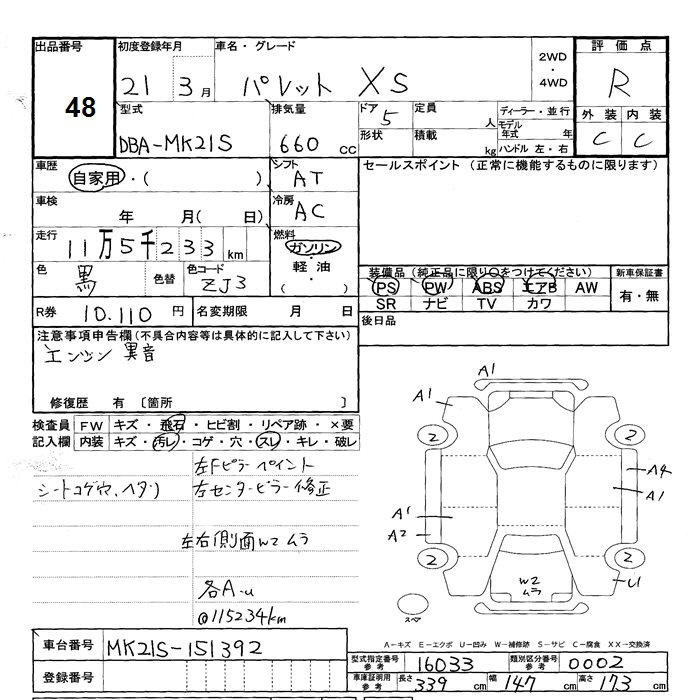 出品番号 初度登録年月 車名・グレード 2WD ・ 4WD 評価点
48 21 3月 パレット XS R
型式 排気量 ドア 定員 ディーラー・並行 外装 内装
DBA-MK21S 660 CC 5 人 モデル年式 年 C C
形状 積載 kg ハンドル 左・右
車歴 自家用・( ) シフト AT セールスポイント (正常に機能するものに限ります)
車検 年 月( 日) 冷房 AC
走行 11万5千233km 燃料 ガソリン・軽油・( )
色 黒 色替 色コード ZJ3
装備品(純正品に限り○をつけてください) 新車保証書
PS PW ABS エアB AW 有・無
SR ナビ TV カワ
R券 10.110 円 名変期限 月 日 後日品
注意事項申告欄(不具合内容等は具体的に記入して下さい)
エンジン異音
修復歴 有 〔箇所 〕
検査員 FW キズ・飛石・ヒビ割・リペア跡・×要
記入欄 内装 キズ・汚レ・コゲ・穴・スレ・キレ・破レ
左Fピラーペイント
シートコゲ穴、ヘタリ 左センターピラー修正
左右側面W2ムラ
各A.u
@115234km
A1
A1
2 2
A4
A1
A1
A2
2 2
W2
ムラ
U1
スペア
A−キズ E−エクボ U−凹み W−補修跡 S−サビ C−腐食 XX→交換済
車台番号 MK21S-151392
型式指定番号 参考 16033 類別区分番号 参考 0002
登録番号
車庫証明用 参考 長さ 339 cm 幅 147 cm 高さ 173 cm